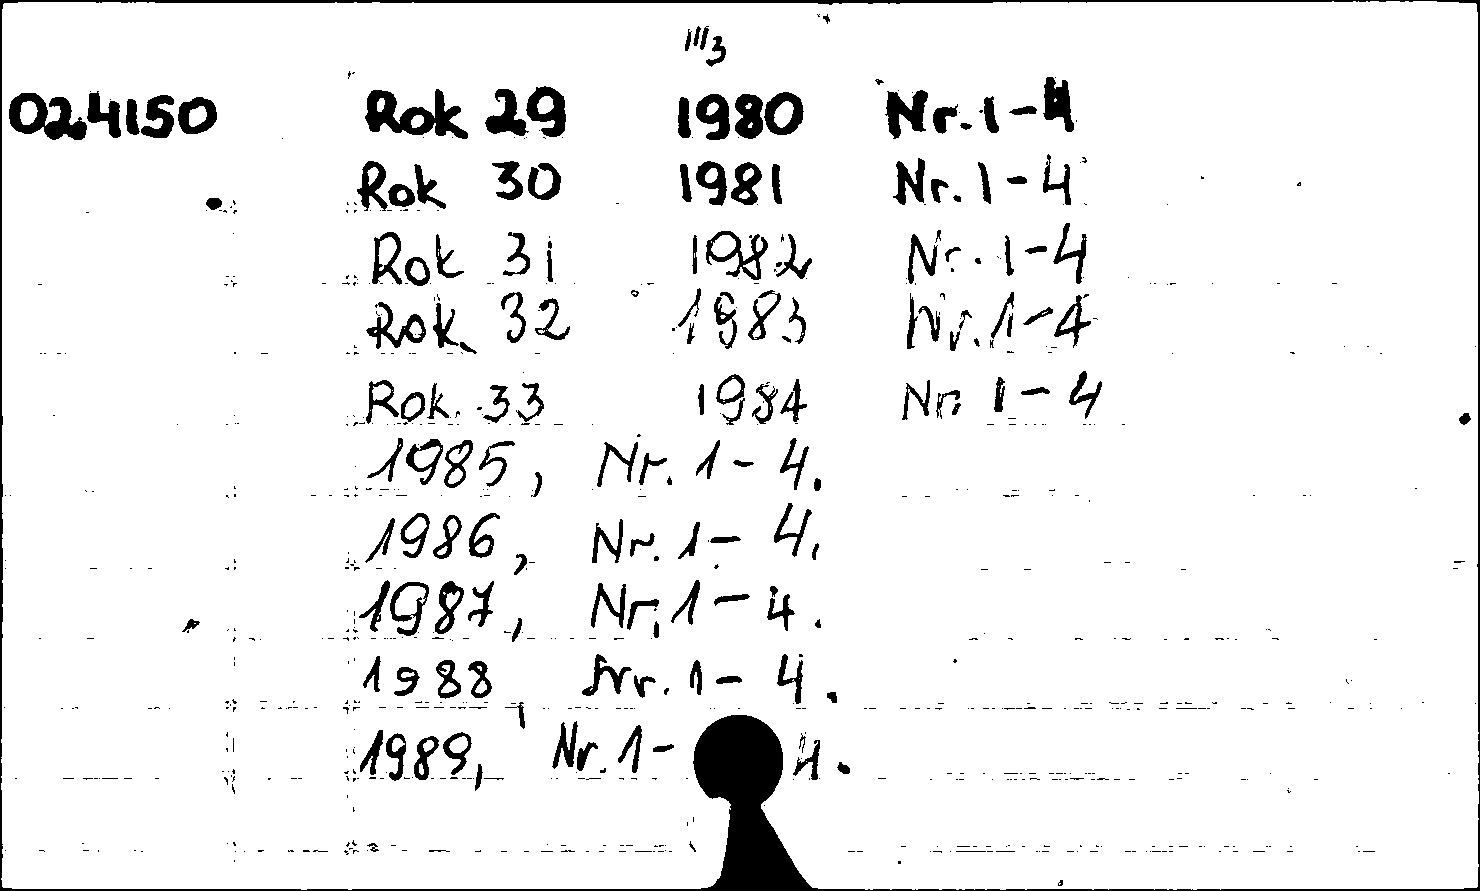 III3
024150 Rok 29 1980 Nr. 1-4
Rok 30 1981 Nr. 1-4
Rok 31 1982 Nr. 1-4
Rok. 32 1983 Nr. 1-4
Rok. 33 1984 Nr. 1-4
1985, Nr. 1-4.
1986, Nr. 1-4.
1987, Nr. 1-4.
1988, Nr. 1-4.
1989, Nr. 1-4.